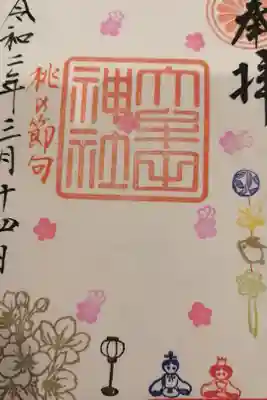 奉拝
神社
桃の節句
令和二年三月十四日